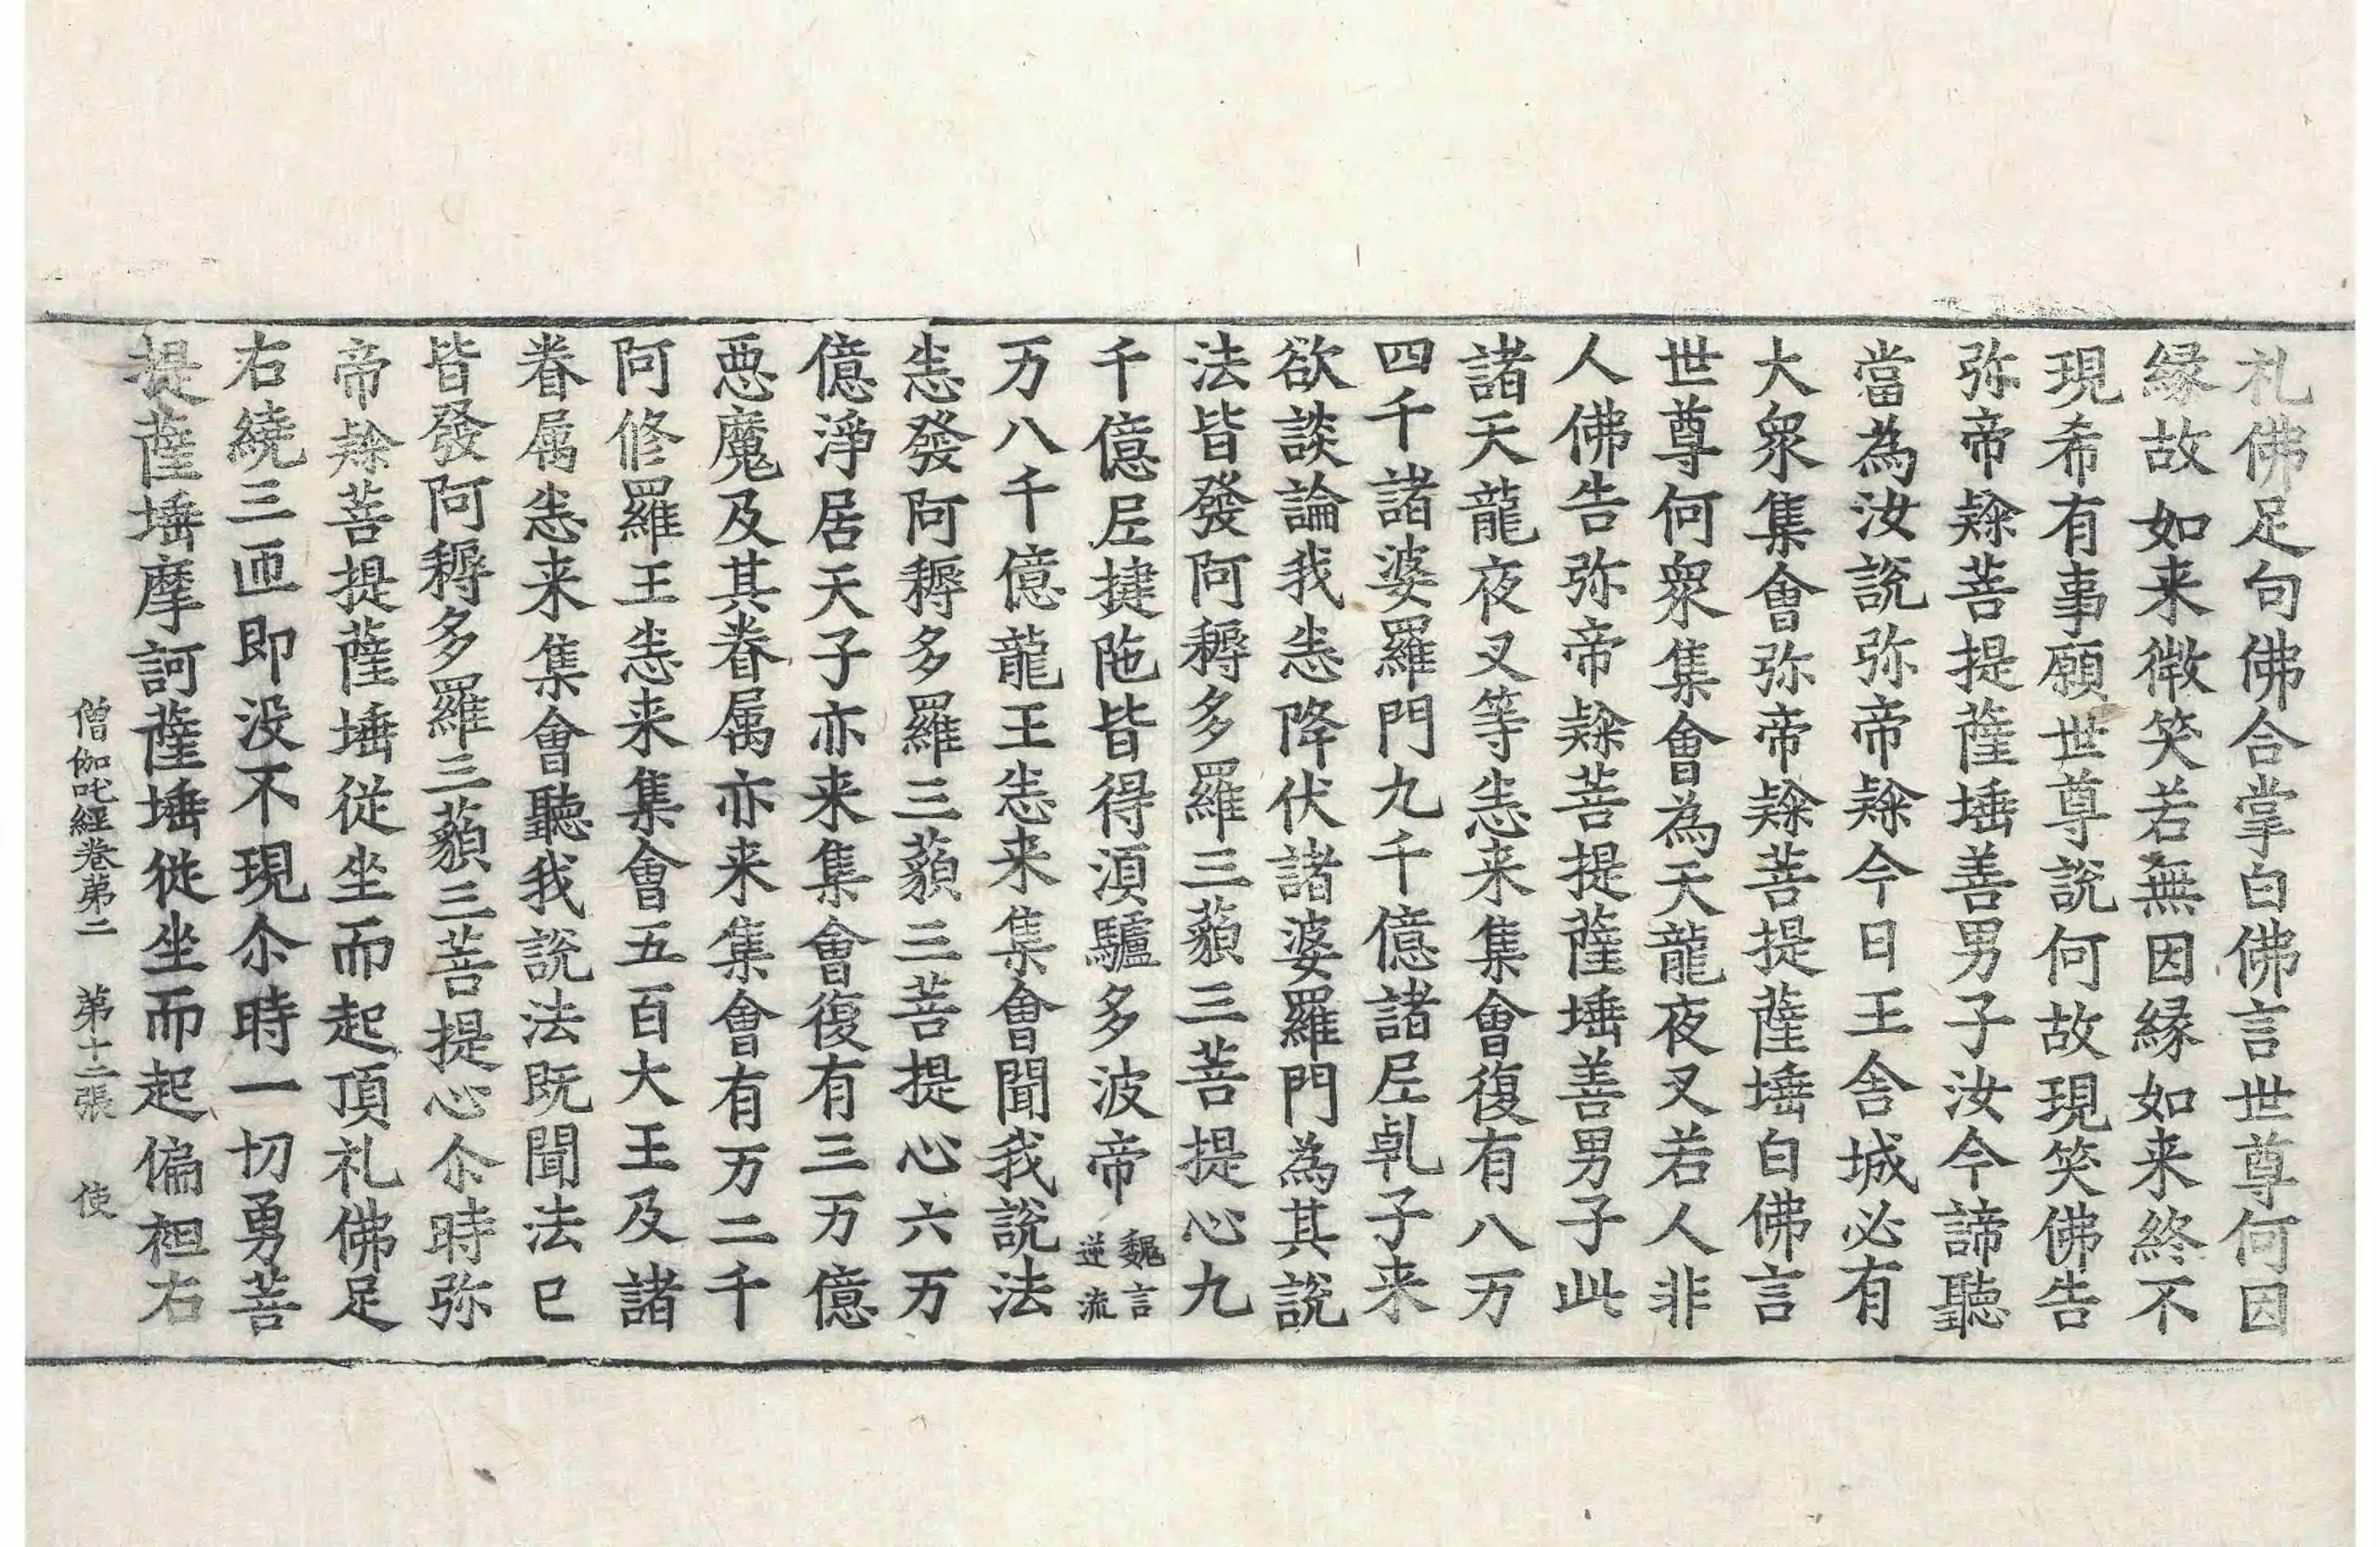 礼佛足句佛合掌白佛言世尊何因
縁故如来微笑若無因縁如来終不
現希有事願世尊說何故現笑佛告
弥帝𨽻菩提薩埵善男子汝今諦聽
當為汝說弥帝𨽻今日王舍城必有
大衆集會弥帝𨽻菩提薩埵白佛言
世尊何衆集會為天龍夜叉若人非
人佛告弥帝𨽻菩提薩埵善男子此
諸天龍夜叉等悉来集會復有八万
四千諸婆羅門九千億諸尼乹子来
欲談論我悉降伏諸婆羅門為其說
法皆發阿耨多羅三藐三菩提心九
千億尼揵陁皆得湏驢多波帝魏言逆流
万八千億龍王悉来集會聞我說法
悉發阿耨多羅三藐三菩提心六万
億淨居天子亦来集會復有三万億
惡魔及其眷属亦来集會有万二千
阿修羅王悉来集會五百大王及諸
眷属悉来集會聽我說法既聞法已
皆發阿耨多羅三藐三菩提心尒時弥
帝𨽻菩提薩埵從坐而起頂礼佛足
右繞三匝即没不現尒時一切勇菩
提薩埵摩訶薩埵從坐而起偏袒右
僧伽吒經卷第二 第十二張 使